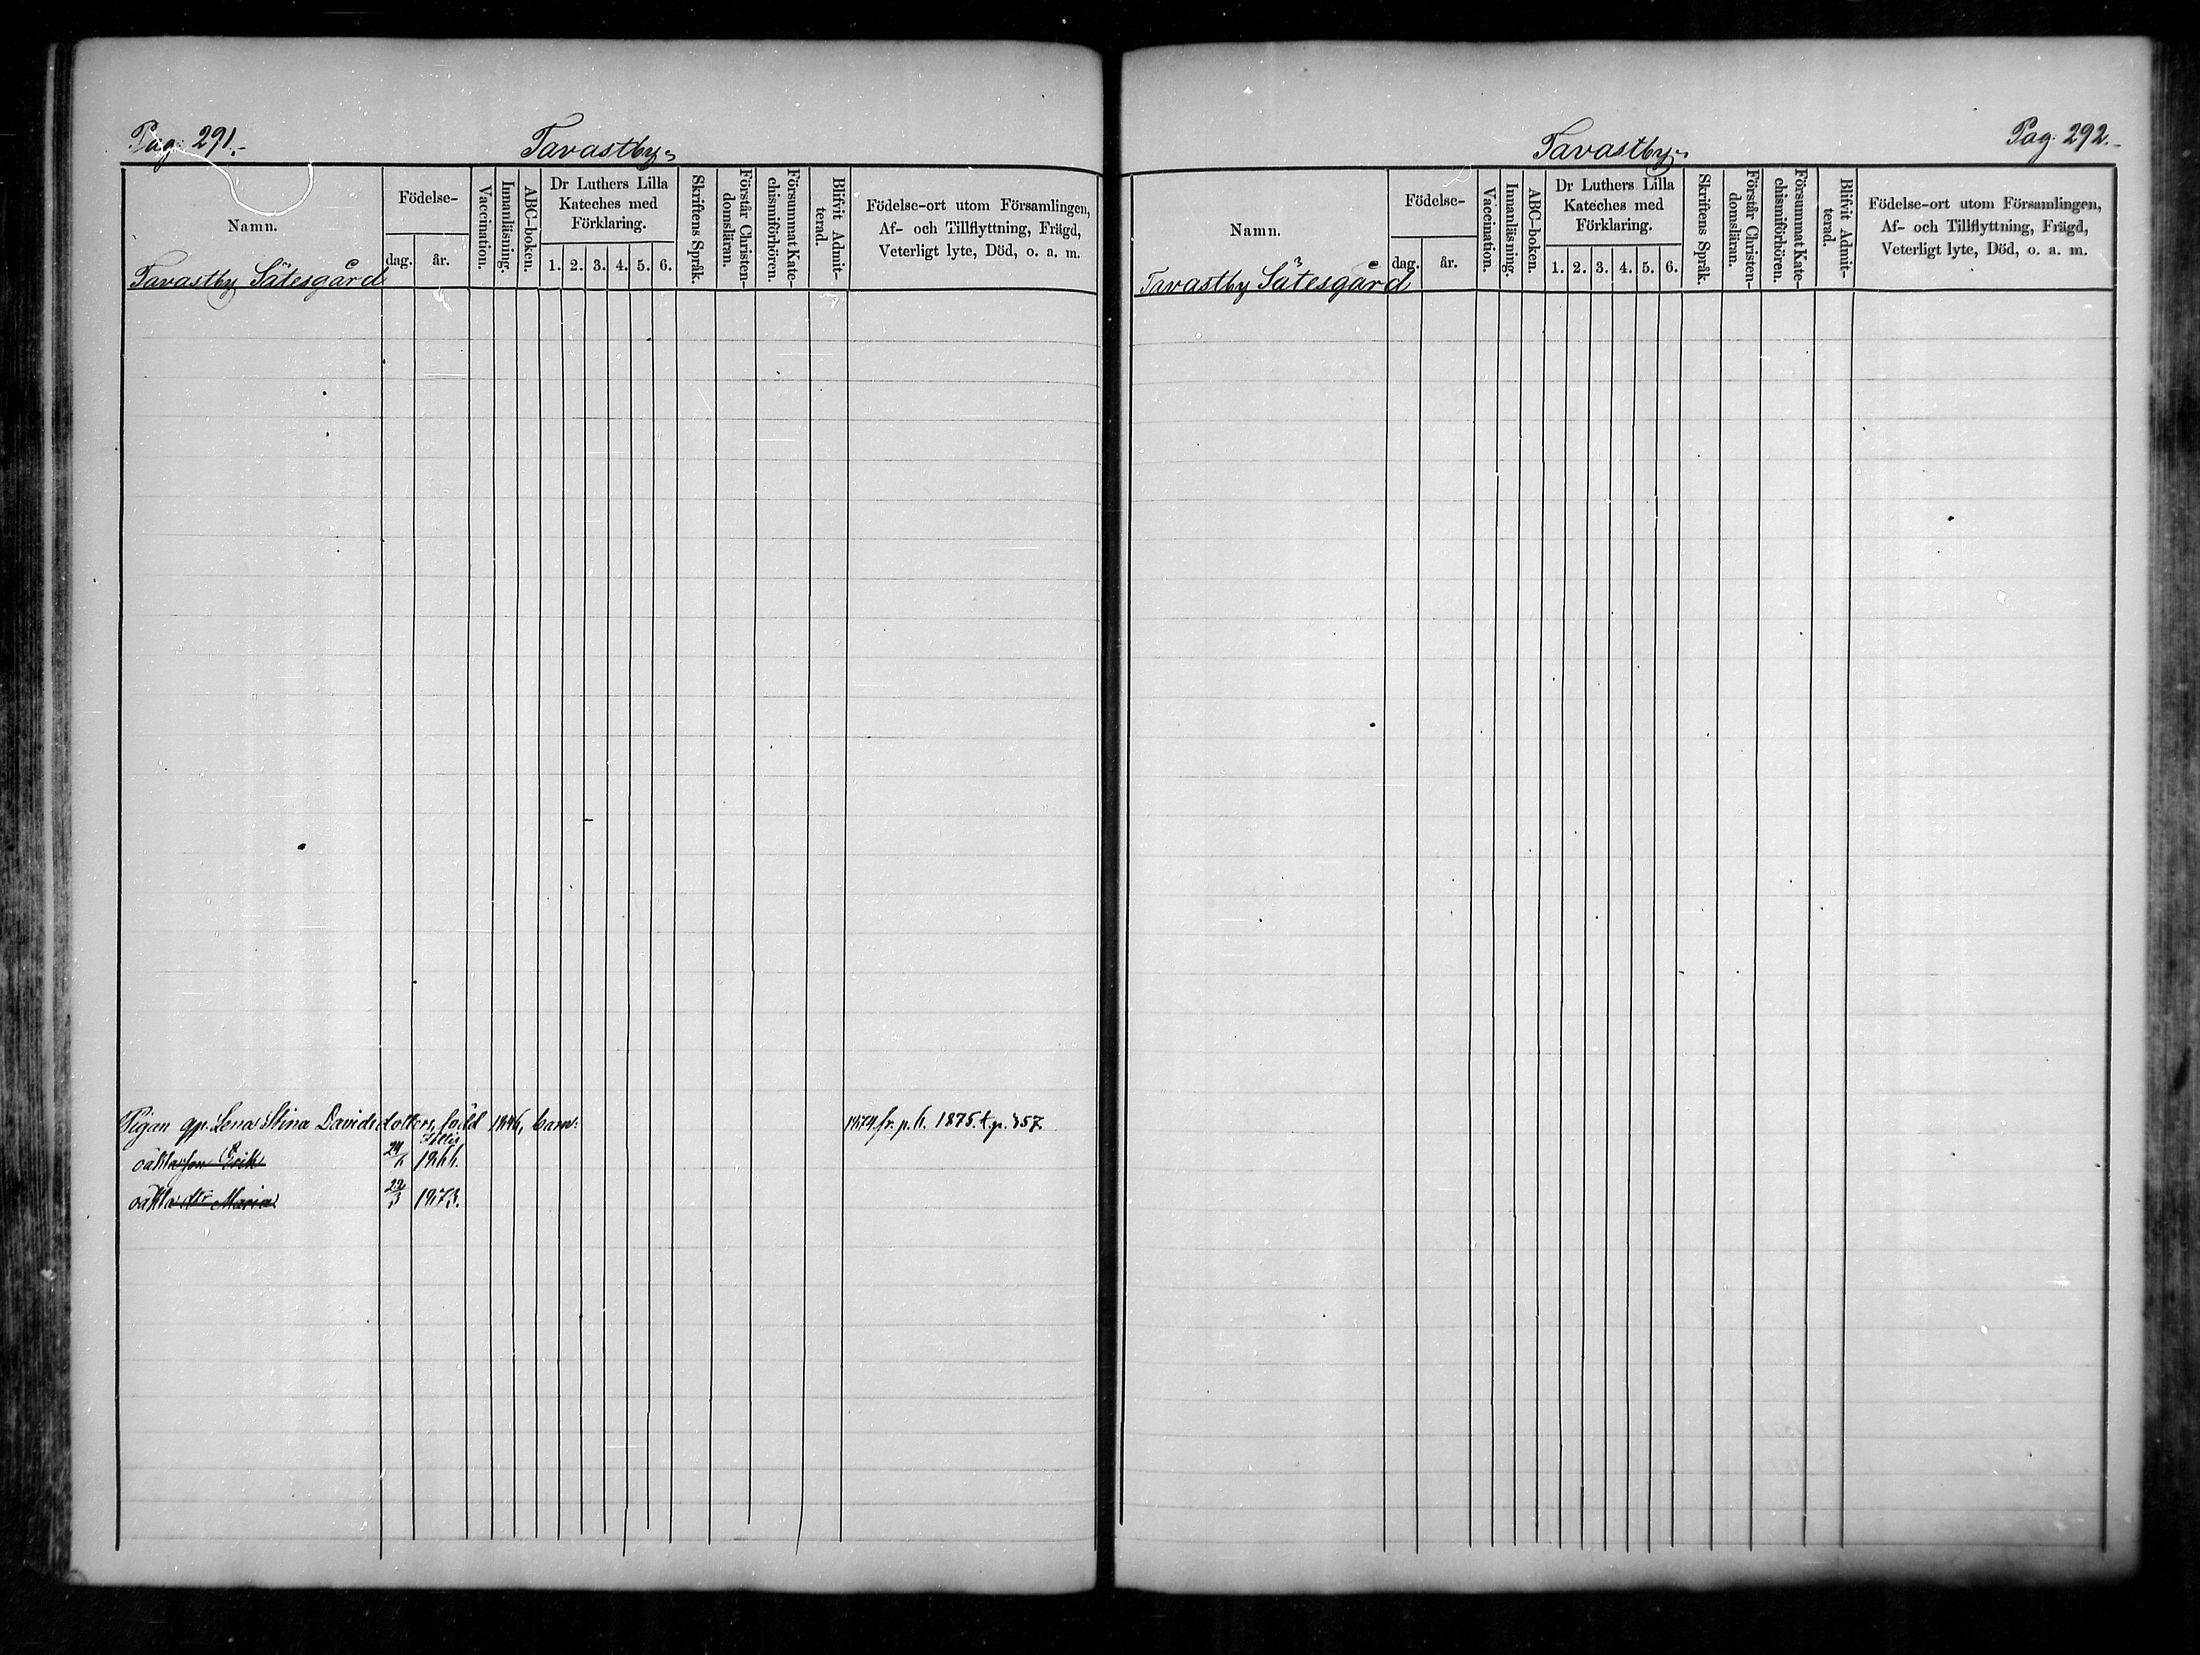 Pag. 291.
Tavastby.
Namn.
Födelse-
dag.
år.
Vaccination.
Innanläsning.
ABC-boken.
Dr Luthers Lilla
Kateches med
Förklaring.
1. 2. 3. 4. 5. 6.
Skriftens Språk.
Förstår Christen-
domsläran.
Försummat Kate-
chismiförhören.
Blifvit Admit-
terad.
Födelse-ort utom Församlingen,
Af- och Tillflyttning, Frägd,
Veterligt lyte, Död, o. a. m.
Tavastby Sätesgård
Pigan Lena Stina Davidsdotters, född 1846, barn: 1874 fr. p. 1875. t. p. 357.
oäkta son Erik 1866.
oäkta dtr Maria 22/3 1873.
Pag. 292.
Tavastby.
Namn.
Födelse-
dag.
år.
Vaccination.
Innanläsning.
ABC-boken.
Dr Luthers Lilla
Kateches med
Förklaring.
1. 2. 3. 4. 5. 6.
Skriftens Språk.
Förstår Christen-
domsläran.
Försummat Kate-
chismiförhören.
Blifvit Admit-
terad.
Födelse-ort utom Församlingen,
Af- och Tillflyttning, Frägd,
Veterligt lyte, Död, o. a. m.
Tavastby Sätesgård